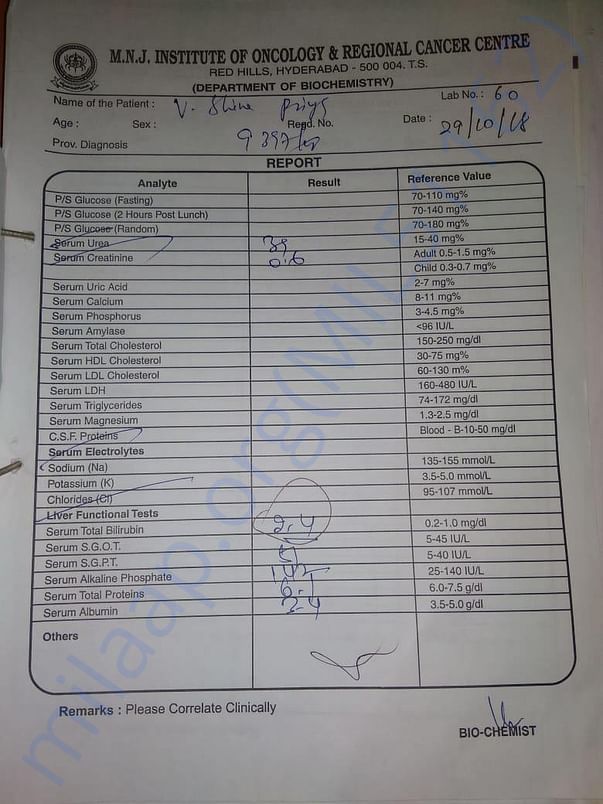 M.N.J. INSTITUTE OF ONCOLOGY & REGIONAL CANCER CENTRE
RED HILLS, HYDERABAD - 500 004. T.S.
(DEPARTMENT OF BIOCHEMISTRY)
Name of the Patient : V. Shine Priya Lab No. : 60
Age : Sex : Regd. No. Date : 29/10/18
Prov. Diagnosis 9397
REPORT
Analyte Result Reference Value
P/S Glucose (Fasting) 70-110 mg%
P/S Glucose (2 Hours Post Lunch) 70-140 mg%
P/S Glucose (Random) 70-180 mg%
Serum Urea 15-40 mg%
Serum Creatinine 0.6 Adult 0.5-1.5 mg%
Child 0.3-0.7 mg%
Serum Uric Acid 2-7 mg%
Serum Calcium 8-11 mg%
Serum Phosphorus 3-4.5 mg%
Serum Amylase <96 IU/L
Serum Total Cholesterol 150-250 mg/dl
Serum HDL Cholesterol 30-75 mg%
Serum LDL Cholesterol 60-130 m%
Serum LDH 160-480 IU/L
Serum Triglycerides 74-172 mg/dl
Serum Magnesium 1.3-2.5 mg/dl
C.S.F. Proteins Blood - B-10-50 mg/dl
Serum Electrolytes
Sodium (Na) 135-155 mmol/L
Potassium (K) 3.5-5.0 mmol/L
Chlorides (Cl) 95-107 mmol/L
Liver Functional Tests
Serum Total Bilirubin 2.4 0.2-1.0 mg/dl
Serum S.G.O.T. 5-45 IU/L
Serum S.G.P.T. 51 5-40 IU/L
Serum Alkaline Phosphate 25-140 IU/L
Serum Total Proteins 6.1 6.0-7.5 g/dl
Serum Albumin 3.4 3.5-5.0 g/dl
Others
Remarks : Please Correlate Clinically
BIO-CHEMIST